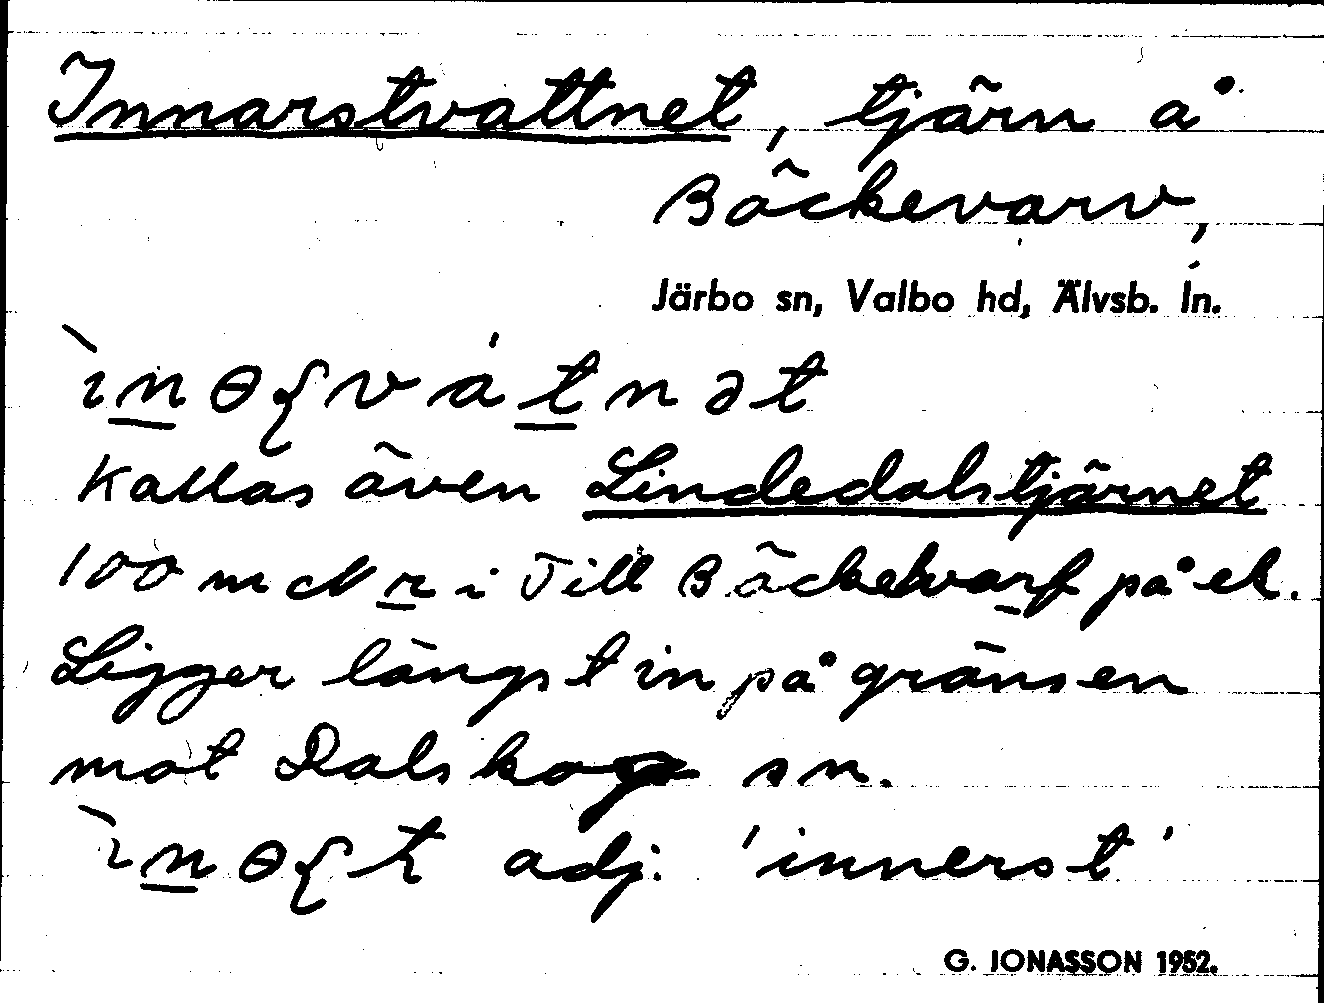 Innarstvattnet, tjärn å
Bäckevarv,
Järbo sn, Valbo hd, Älvsb. ln.
ìn̲ɵʃvát̲nət
Kallas även Lindedalstjärnet
100 m N r̲ i Till Bäckehvar̲f på ek.
Ligger längst in på gränsen
mot Dalskogs sn.
ìn̲ɵʃt adj. 'innerst'
G. JONASSON 1952.